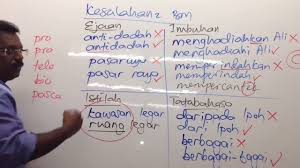 Kesalahan2 Bm
pro
pro
tele
bio
pasca
Ejaan
anti-dadah ×
antidadah ✓
pasaraya ×
pasar raya ✓
Imbuhan
menghadiahkan Ali ×
menghadiahi Ali ✓
memperindahkan ×
memperindah ✓
mempercantik
Istilah
kawasan legar
ruang legar
Tatabahasa
daripada Ipoh ×
dari Ipoh ✓